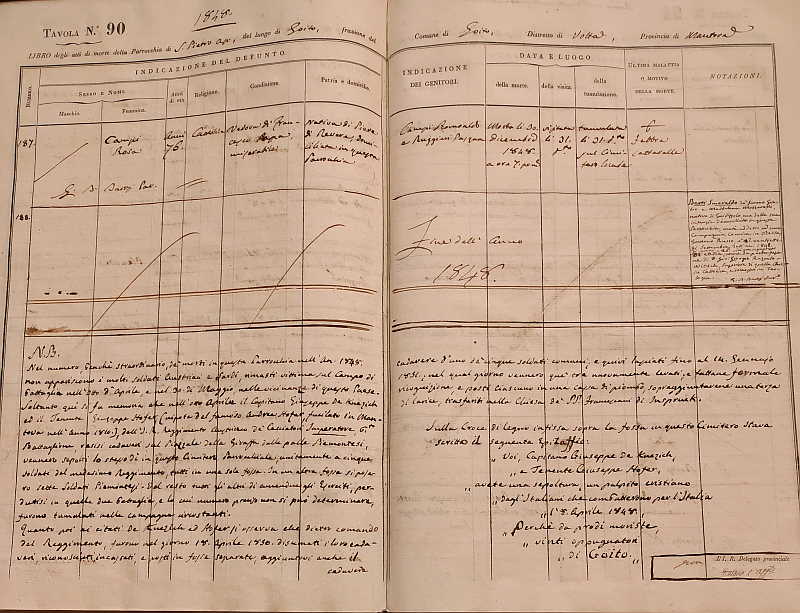 TAVOLA N.° 90
1848.
LIBRO degli atti di morte della Parrocchia di S. Pietro Ap., del luogo di Goito, frazione del
INDICAZIONE DEL DEFUNTO.
NUMERO.
SESSO E NOME.
Maschio.
Femmina.
Anni di età.
Religione.
Condizione.
Patria e domicilio.
187.
Campi
Rosa
Anni
76.
Vedova di Fran-
miserabile
Nativa di Pieve
di Revere, domi-
ciliata in questa
Parrocchia
188.
N.B.
Nel numero benchè straordinario, de' morti in questa Parrocchia nell'An. 1848.
non appariscono i molti soldati Austriaci e Sardi, rimasti vittime sul Campo di
Battaglia nell'otto d'Aprile, e nel 30. di Maggio nelle vicinanze di questo Paese.
Soltanto qui si fa memoria che nell'otto Aprile il Capitano Giuseppe de Knezich
ed il Tenente Giuseppe Hofer (Nipote del famoso Andrea Hofer, fucilato in Man-
tova nell'anno 1810.) dell'I. R. Reggimento Austriaco di Cacciatori Imperatore 6.°
Battaglione rasisi cadaveri sul Piazzale della Giraffa dalle palle Piemontesi,
vennero sepolti lo stesso dì in questo Cimitero Parrocchiale, unitamente a cinque
soldati del medesimo Reggimento, tutti in una sola fossa. In un'altra fossa si pose-
ro sette Soldati Piemontesi. Del resto tutti gli altri di amendue gli Eserciti, per-
dutisi in quelle due Battaglie, e la cui numero preciso non si può determinare,
furono tumulati nelle campagne circostanti.
Quanto poi ai citati De Knezich ed Hofer si osserva che dietro comando
del Reggimento, furono nel giorno 18. Aprile 1850. disumati i loro cada-
veri, riconosciuti, incassati, e posti in fosse separate, aggiuntovi anche il
cadavere
Comune di Goito, Distretto di Volta, Provincia di Mantova
INDICAZIONE
DEI GENITORI.
DATA E LUOGO
della morte.
della visita.
della tumulazione.
ULTIMA MALATTIA
O MOTIVO
DELLA MORTE.
NOTAZIONI.
Campi Romualdo
e Ruggiari Pasqua
Morta li 30.
dicembre
1848.
a ore 7. pom.
visitata
li 31.
tumulata
li 31. d.°
sul Cimi-
tero locale
Febbre
catarrale
Fine dell' Anno
1848.
cadavere d'uno de' cinque soldati comuni, e quivi lasciati fino al 14. Gennajo
1851, nel qual giorno vennero que' tre nuovamente levati, e fattane formale
ricognizione, e posti ciascuno in una cassa di piombo, sopraggiuntavene una terza
di larice, trasferiti nella Chiesa de' PP. Francescani di
Sulla Croce di legno infissa sopra la fossa in questo Cimitero stava
scritto il seguente Epitaffio:
„ Voi, Capitano Giuseppe de Knezich,
„ e Tenente Giuseppe Hofer,
„ avete una sepoltura, un palpito cristiano
„ dagl'Italiani che combatterono per l'Italia
„ l' 8. Aprile 1848,
„ Perchè da prodi moriste,
„ vinti oppugnatori
„ di Goito. „
L' I. R. Delegato provinciale